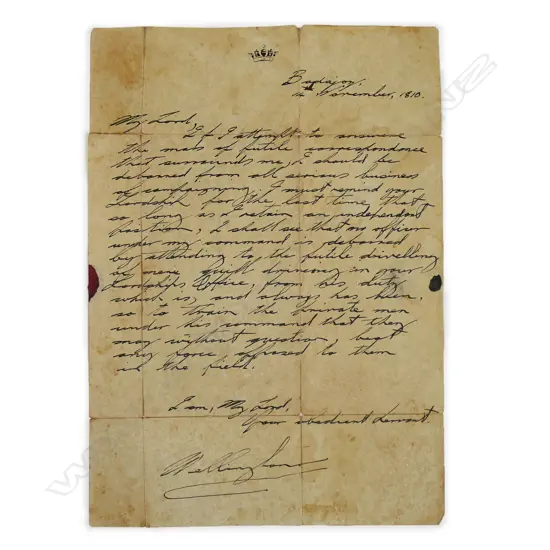 Badajoz,
November, 1810.
My Lord,
If I attempt to answer
the mass of futile correspondence
that surrounds me, I should be
debarred from all serious business
of campaigning. I must remind your
Lordship for the last time that
so long as I retain an independent
position, I shall see that no officer
under my command is debarred
by attending to the futile drivelling
of mere quill driving in your
Lordships Office, from his duty
which is, and always has been,
so to train the private men
under his command that they
may without question, beat
any force opposed to them
in the field.
I am, My Lord,
Your obedient Servant
Wellington